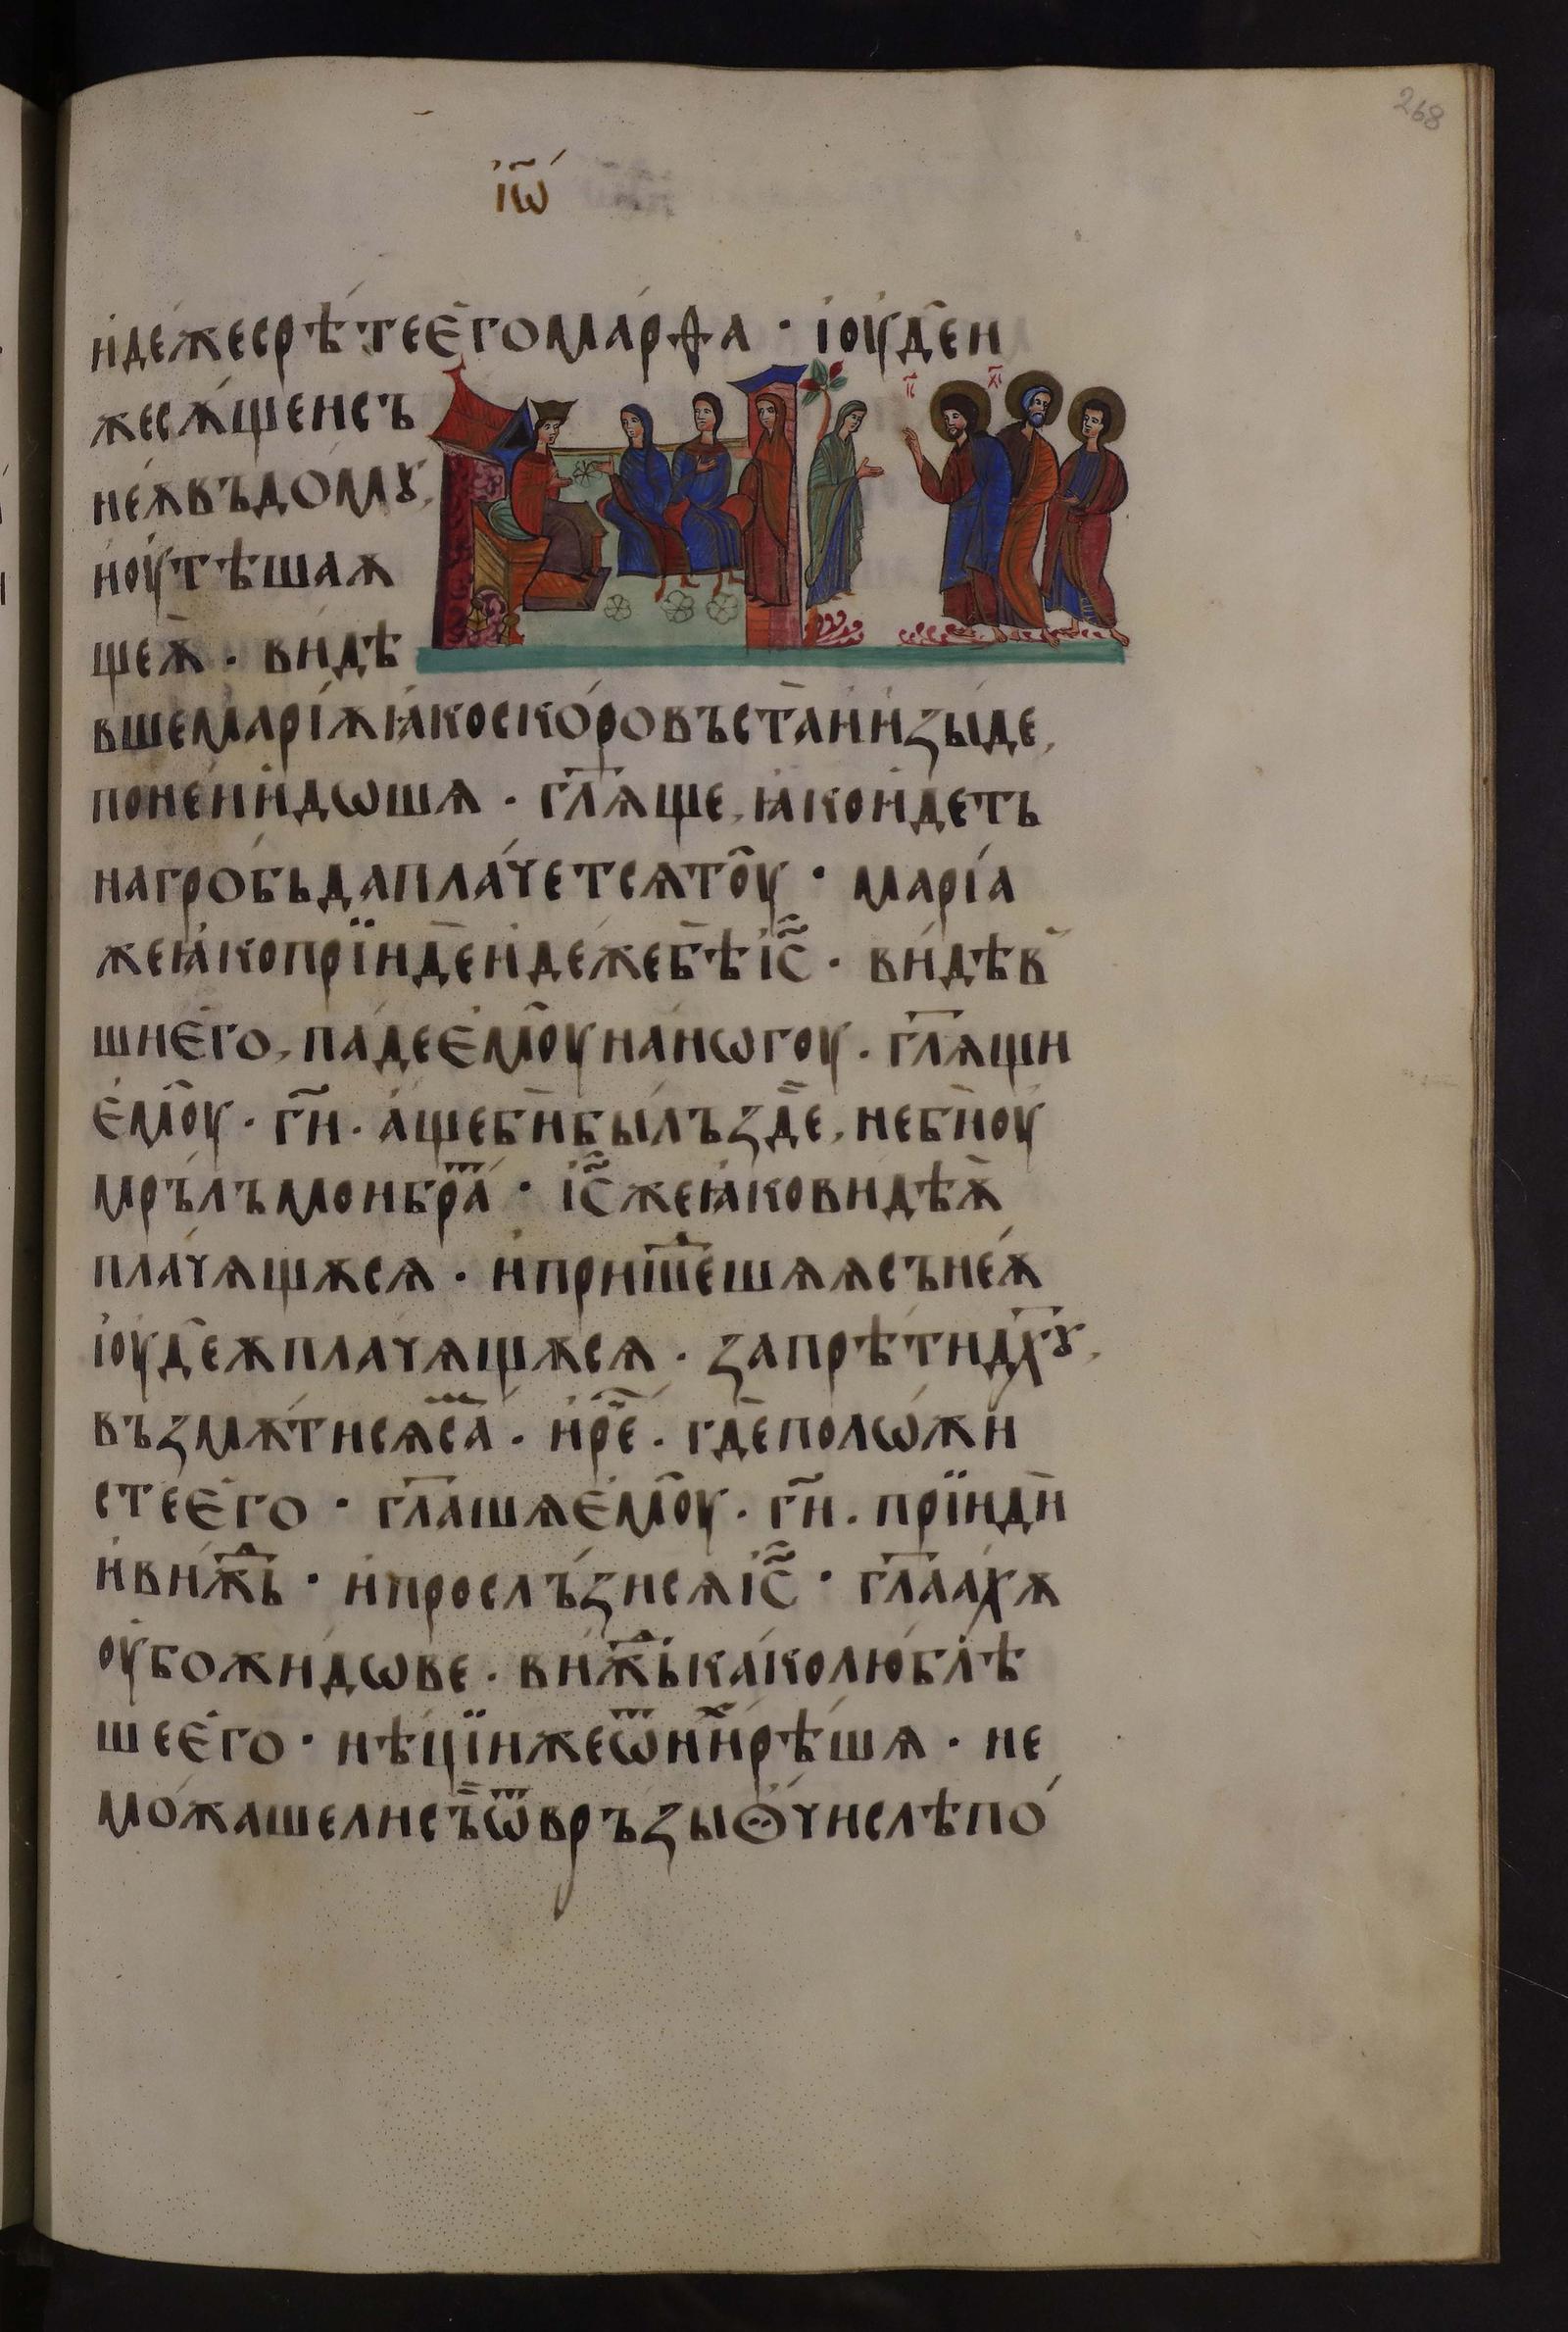 268
і҆ѡ҃
и҆де́жесрѣ́тееє҆гомарѳа · і҆оуде̑и
жесѫ́щеисъ
не́ѫвъдомꙋ,
и҆оутѣшаѫ
щеѫ̀ · ви́дѣ
вшемарі́ѫꙗ҆коско́ровъста̀и҆и҆ꙁы́де,
поне́ии҆дѡшѧ · гл҃ѧще, ꙗ҆кои҆деть
нагро́бьдапла́четсѧто̑у · марі́а
жеꙗ҆копрїиде̑и҆де́жебѣ̀і҆с҃ · ви́дѣв
шиє҆го, па́деє҆мо̑уна́нѡгоу · гл҃ѧщи
є҆мо̑у · ги҃ · а҆́щебѝбы́лъꙁде̏, небѝоу
мрълъмоибра҃ · і҆с҃жеꙗ҆ковидѣѫ̀
пла́чѧщѫсѧ · и҆прише́шѧѧсъне́ѫ
і҆оуде̑ѫплачѧщѫсѧ · ꙁапрѣ́тидх҃ꙋ,
въꙁмѫ́тисѧса́ · и҆ре҃ · где̑полѡ́жи
стеє҆го · гл҃ашѧє҆мо̑у · ги҃ · прїидѝ
и҆ви́жⷣь · и҆просльꙁисѧі҆с҃ · гл҃аахѫ
оубожи́дѡве · ви́жⷣька́колю́блѣ
шеє҆го · нѣ́цїижеѿни́хрѣ́шѧ · не
мо́жашелисъ̏ѿвръꙁыꙩ҆числѣпо́
і҃с х҃с